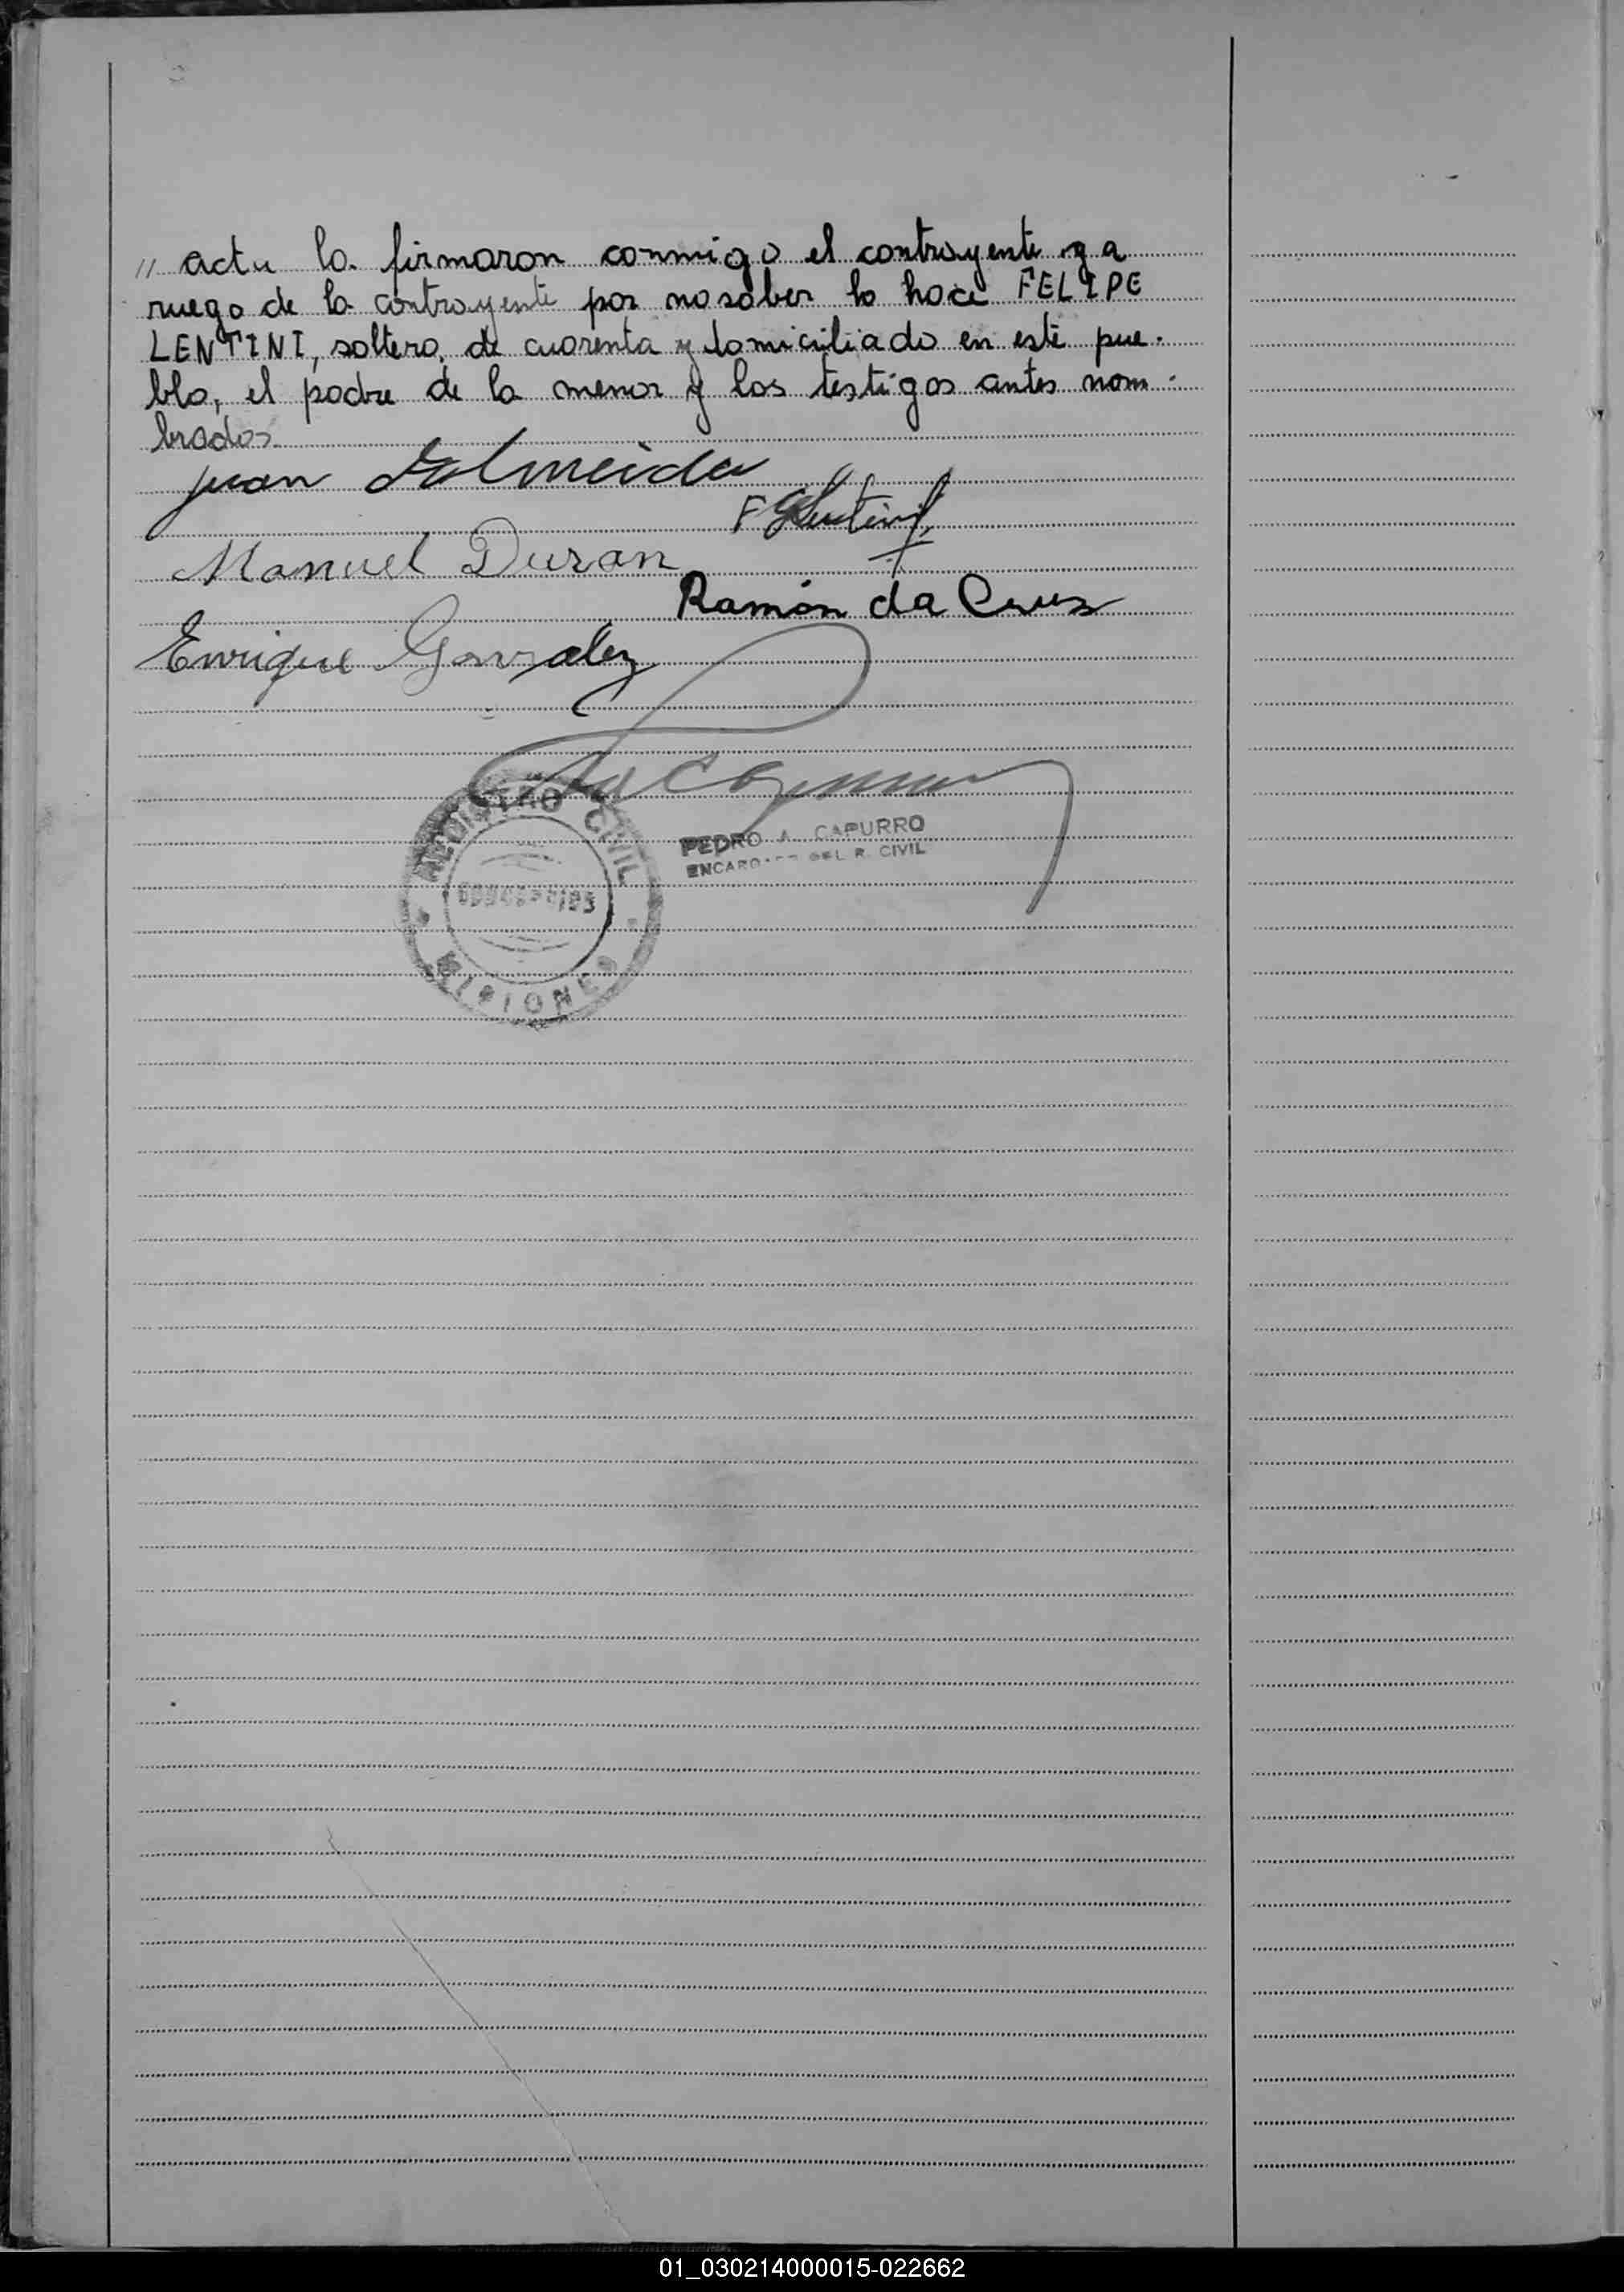 " acta la firmaron conmigo el contrayente y a
ruego de la contrayente por no saber lo hace FELIPE
LENTINI, soltero, de cuarenta y domiciliado en este pue-
blo, el padre de la menor y los testigos antes nom-
brados.
Juan dalmeida
F Lentini
Manuel Duran
Ramón da Cruz
Enrique Gonzalez
REGISTRO CIVIL
MISIONES
PEDRO A. CAPURRO
ENCARGADO DEL R. CIVIL
01_030214000015-022662